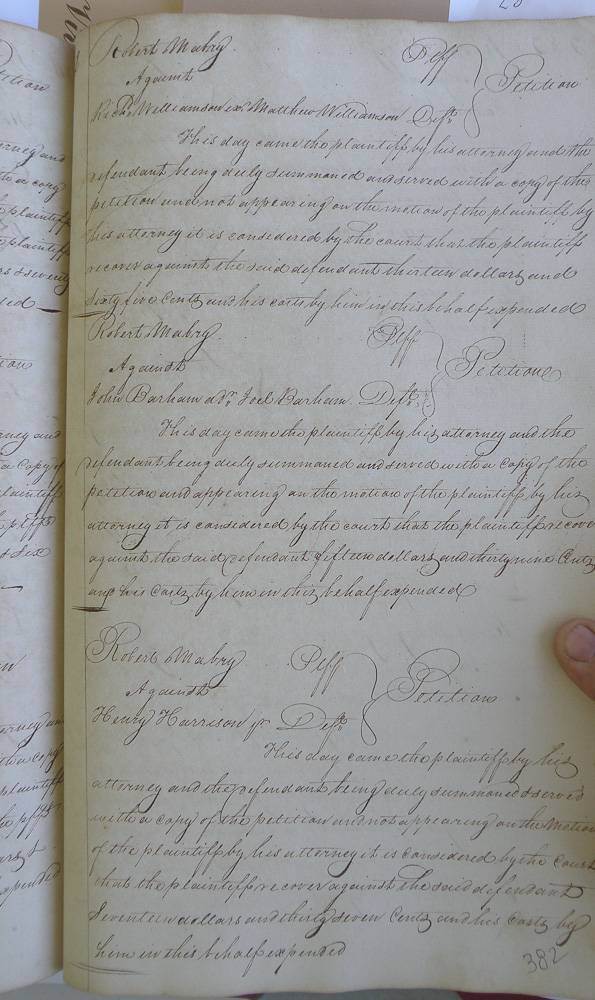 Robert Mabry Plff
Against Petition
Richd Williamson exr Matthew Williamson Deft
This day came the plaintiff by his attorney and the
defendant being duly summoned and served with a copy of the
petition and not appearing on the motion of the plaintiff by
his attorney it is considered by the court that the plaintiff
recover against the said defendant thirteen dollars and
sixty five Cents and his costs by him in this behalf expended
Robert Mabry Plff
Against Petition
John Barham adr Joel Barham Deft
This day came the plaintiff by his attorney and the
defendant being duly summoned and served with a copy of the
petition and appearing on the motion of the plaintiff by his
attorney it is considered by the court that the plaintiff recover
against the said defendant fifteen dollars and thirty nine Cents
and his Costs by him in this behalf expended
Robert Mabry Plff
Against Petition
Henry Harrison jr Deft
This day came the plaintiff by his
attorney and the defendant being duly summoned & served
with a copy of the petition and not appearing on the motion
of the plaintiff by his attorney it is considered by the court
that the plaintiff recover against the said defendant
Seventeen dollars and thirty seven Cents and his Costs by
him in this behalf expended
382